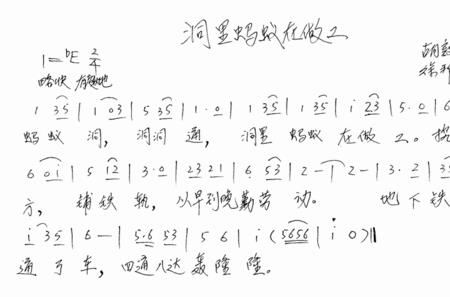 洞里蚂蚁在做工
1=ᵇE 2/4
略快 有趣地
1 35 | 1 03 | 5 35 | 1·0 | 1 35 | 1 35 | i 23 | 5·0 | 6
蚂蚁 洞， 洞洞 通， 洞里 蚂蚁 在做 工。
6 0i | 5 12 | 3·0 | 2321 | 6 53 | 2 — | 2 — | 3·2 |
方， 铺铁 轨， 从早到晚勤劳 动。 地下铁
i 35 | 6 — | 5·6 53 | 5 6 | i (5656 | i 0) ‖
通了车， 四通八达轰隆 隆。